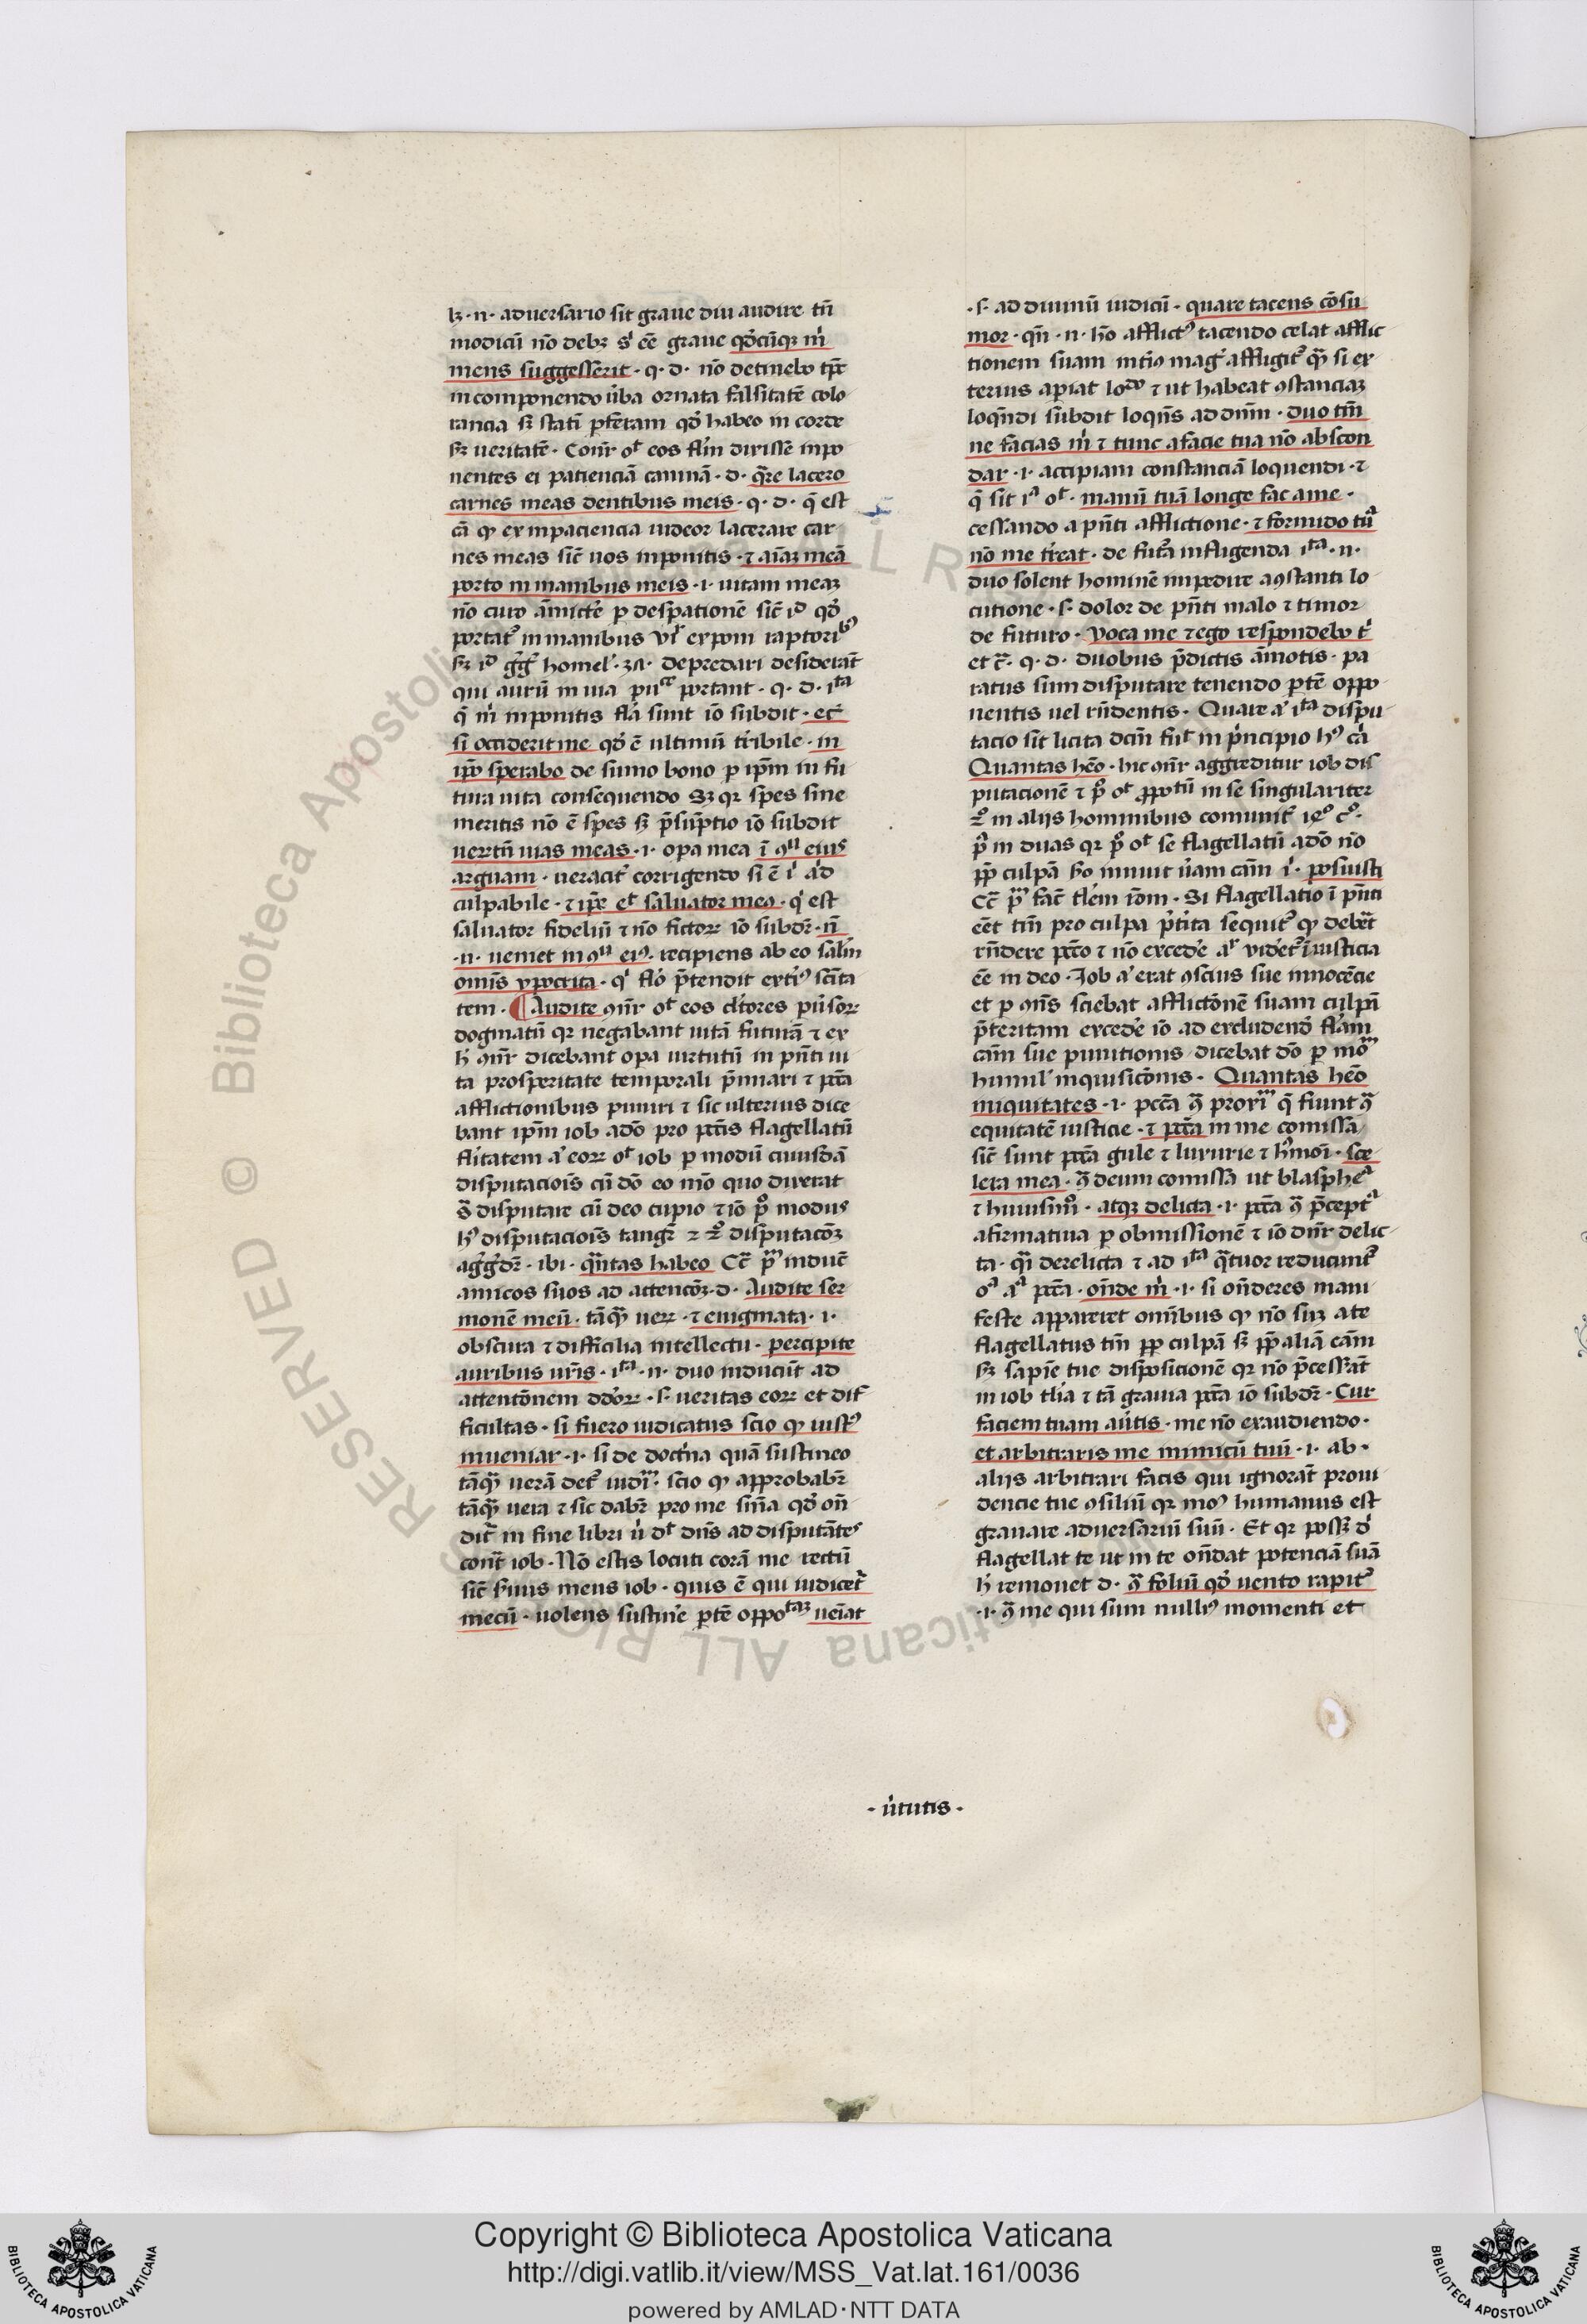 lꝫ · n · adversario sit grave diu audire tn̄
modicū nō debꝫ s' eē grave qđcūqꝫ m̄
mens suggesserit · q · d · nō detinebo tp̄e
in componendo v̄ba ornata falsitatē colo
rancia sꝫ statī pferam qđ habeo in corde
sꝫ veritatē · Conr̄ eos dixisse inpo
nentes ei patienciā caninā · d · q̄re lacero
carnes meas dentibus meis · q · d · q̄ est
cā ꝙ ex inpaciencia videor lacerare car
nes meas sic̄ vos inponitis · ⁊ aīaꝫ meā
porto in manibus meis · i · vitam meaꝫ
nō curo āmicte p despationē sic̄ id qđ
portat' in manibus expoīt raptori
sꝫ id homel' · depredari desiderat
qui aurū in via portant · q · d · ita
q̄ m̄ inponitis sunt iō subdit · et
si occiderit me qđ ē ultimū tribile · in
ip̄o sperabo de sumo bono p ip̄m in fu
tura vita consequendo Sꝫ qr spes sine
meritis nō ē spes sꝫ p̄sūptio iō subdit
verrtū vias meas · i · opa mea ī ꝯ eius
arguam · veracit' corrigendo si ē i' ad
culpabile · ⁊ ip̄e et salvator meꝰ · q' est
salvator fideliū ⁊ nō fictoꝝ iō subdꝫ · n̄
· n · veniet in ꝯ eiꝰ · recipiens ab eo
omīs ypocrita · q' p̄tendit sc̄ita
tem · ¶ Audite eos
dogmatū qr negabant vitā futurā ⁊ ex
h' dicebant opa virtutū in pn̄ti vi
ta prosperitate temporali p̄miari ⁊ pcc̄a
afflictionibus puniri ⁊ sic ulterius dice
bant ip̄m iob adō pro pcc̄is flagellatū
eoꝝ iob p modū cuiusdā
disputaciois cū dō eo mō quo dixerat
s' disputare cū deo cupio ⁊ iō p° modus
hꝰ disputaciois tangit' ⁊ 2° disputacōꝫ
· ibi · qn̄tas habeo induc̄
amicos suos ad attencōꝫ · d · Audite ser
monē meū · tāq̄ veꝝ · ⁊ enigmata · i ·
obscura ⁊ difficilia intellectu · percipite
auribus vr̄is · ita · n · duo inducūt ad
attentōnem · s · veritas eoꝝ et dif
ficultas · si fuero iudicatus scio ꝙ iustꝰ
inveniar · i · si de doct'na quā sustineo
tāq̄ verā det' iudm̄ · scio ꝙ approbabꝫ
tāq̄ vera ⁊ sic dabꝫ pro me sn̄ia qđ on̄
dit̄ in fine libri ū dn̄s ad disputātes
cont̄ iob · Nō estis locuti corā me rectū
sic̄ suus meus iob · quis ē qui iudicet̄
mecū · volens sustine p̄tē oppotaꝫ veiat
· s · ad divinū iudiciū · quare tacens cōsu
mor · qn̄ · n · hō afflictꝰ tacendo celat afflic
tionem suam intiꝰ mag' affligit' q̄ si ex
terius apiat lo⁊ ut habeat ꝯstanciaꝫ
loqn̄di subdit loqn̄s ad dn̄m · duo tm̄
ne facias m̄ ⁊ tunc a facie tua nō abscon
dar · i · accipiam constanciā loquendi · ⁊
q̄ sit · manū tuā longe fac a me ·
cessando a pn̄ti afflictione · ⁊ formido tūa
nō me t'reat · de fut'a infligenda ita · n ·
duo solent hominē inpedire a ꝯstanti lo
cutione · s · dolor de pn̄ti malo ⁊ timor
de futuro · Voca me ⁊ ego respondebo t'
et c̄ · q · d · duobus p̄dictis āmotis · pa
ratus sum disputare tenendo p̄tē oppo
nentis vel rn̄dentis · Quare a' ita dispu
tacio sit licita dcm̄ fuit in p̄ncipio hꝰ ca'
Quantas hēo · hic aggreditur iob dis
putacionē ⁊ p° in se singulariter
2° in aliis hominibus comunit' 14° c° ·
p̄ in duas qr p° se flagellatū adō nō
pp̄ culpā sꝫ o innuit cām i' · posuisti
fac̄ Si flagellatio ī pn̄ti
eēt tm̄ pro culpa p̄t'ita sequit' ꝙ debet
rn̄dere pcc̄o ⁊ nō excede a' videt' iniusticia
ēe in deo · Iob a' erat ꝯscius sue innocēcie
et p ꝯn̄s sciebat afflictōnē suam culpā
p̄teritam excede iō ad excludend'
cām sue punitionis dicebat dō p mō
humil' inquisicōnis · Quantas hēo
iniquitates · i · pcc̄a q̄ fiunt ꝯ
equitatē iusticie · ⁊ pcc̄a in me comissa
sic̄ sunt pcc̄a gule ⁊ luxurie ⁊ hmōi · sce
lera mea · ꝯ deum comissa ut blasphe
⁊ huiusmō · atqꝫ delicta · i · pcc̄a ꝯ p̄cept
afirmativa p obmissionē ⁊ iō dn̄r delic
ta · q̄i derelicta ⁊ ad ita q̄tuor reducunt'
pcc̄a · on̄de m̄ · i · si on̄deres mani
feste appareret omībus ꝙ nō suꝫ a te
flagellatus tm̄ pp̄ culpā sꝫ pp̄ aliā cām
sꝫ sapīe tue disposicionē qr nō p̄cesserāt
in iob t'lia ⁊ tā gravia pcc̄a iō subdꝫ · Cur
faciem tuam av̄tis · me nō exaudiendo ·
et arbitraris me inimicū tuū · i · ab ·
aliis arbitrari facis qui ignorāt provi
dencie tue ꝯsiliū qr moꝰ humanus est
gravare adversariū suū · Et qr possꝫ d'
flagellat te ut in te on̄dat potenciā suā
h' removet d · ꝯ foliū qđ vento rapit'
· i · ꝯ me qui sum nulliꝰ momenti et
· v̄tutis ·
RESERVED © Biblioteca Apostolica Vaticana ALL RIGHTS
Copyright © Biblioteca Apostolica Vaticana
http://digi.vatlib.it/view/MSS_Vat.lat.161/0036
powered by AMLAD·NTT DATA
BIBLIOTECA APOSTOLICA VATICANA
BIBLIOTECA APOSTOLICA VATICANA